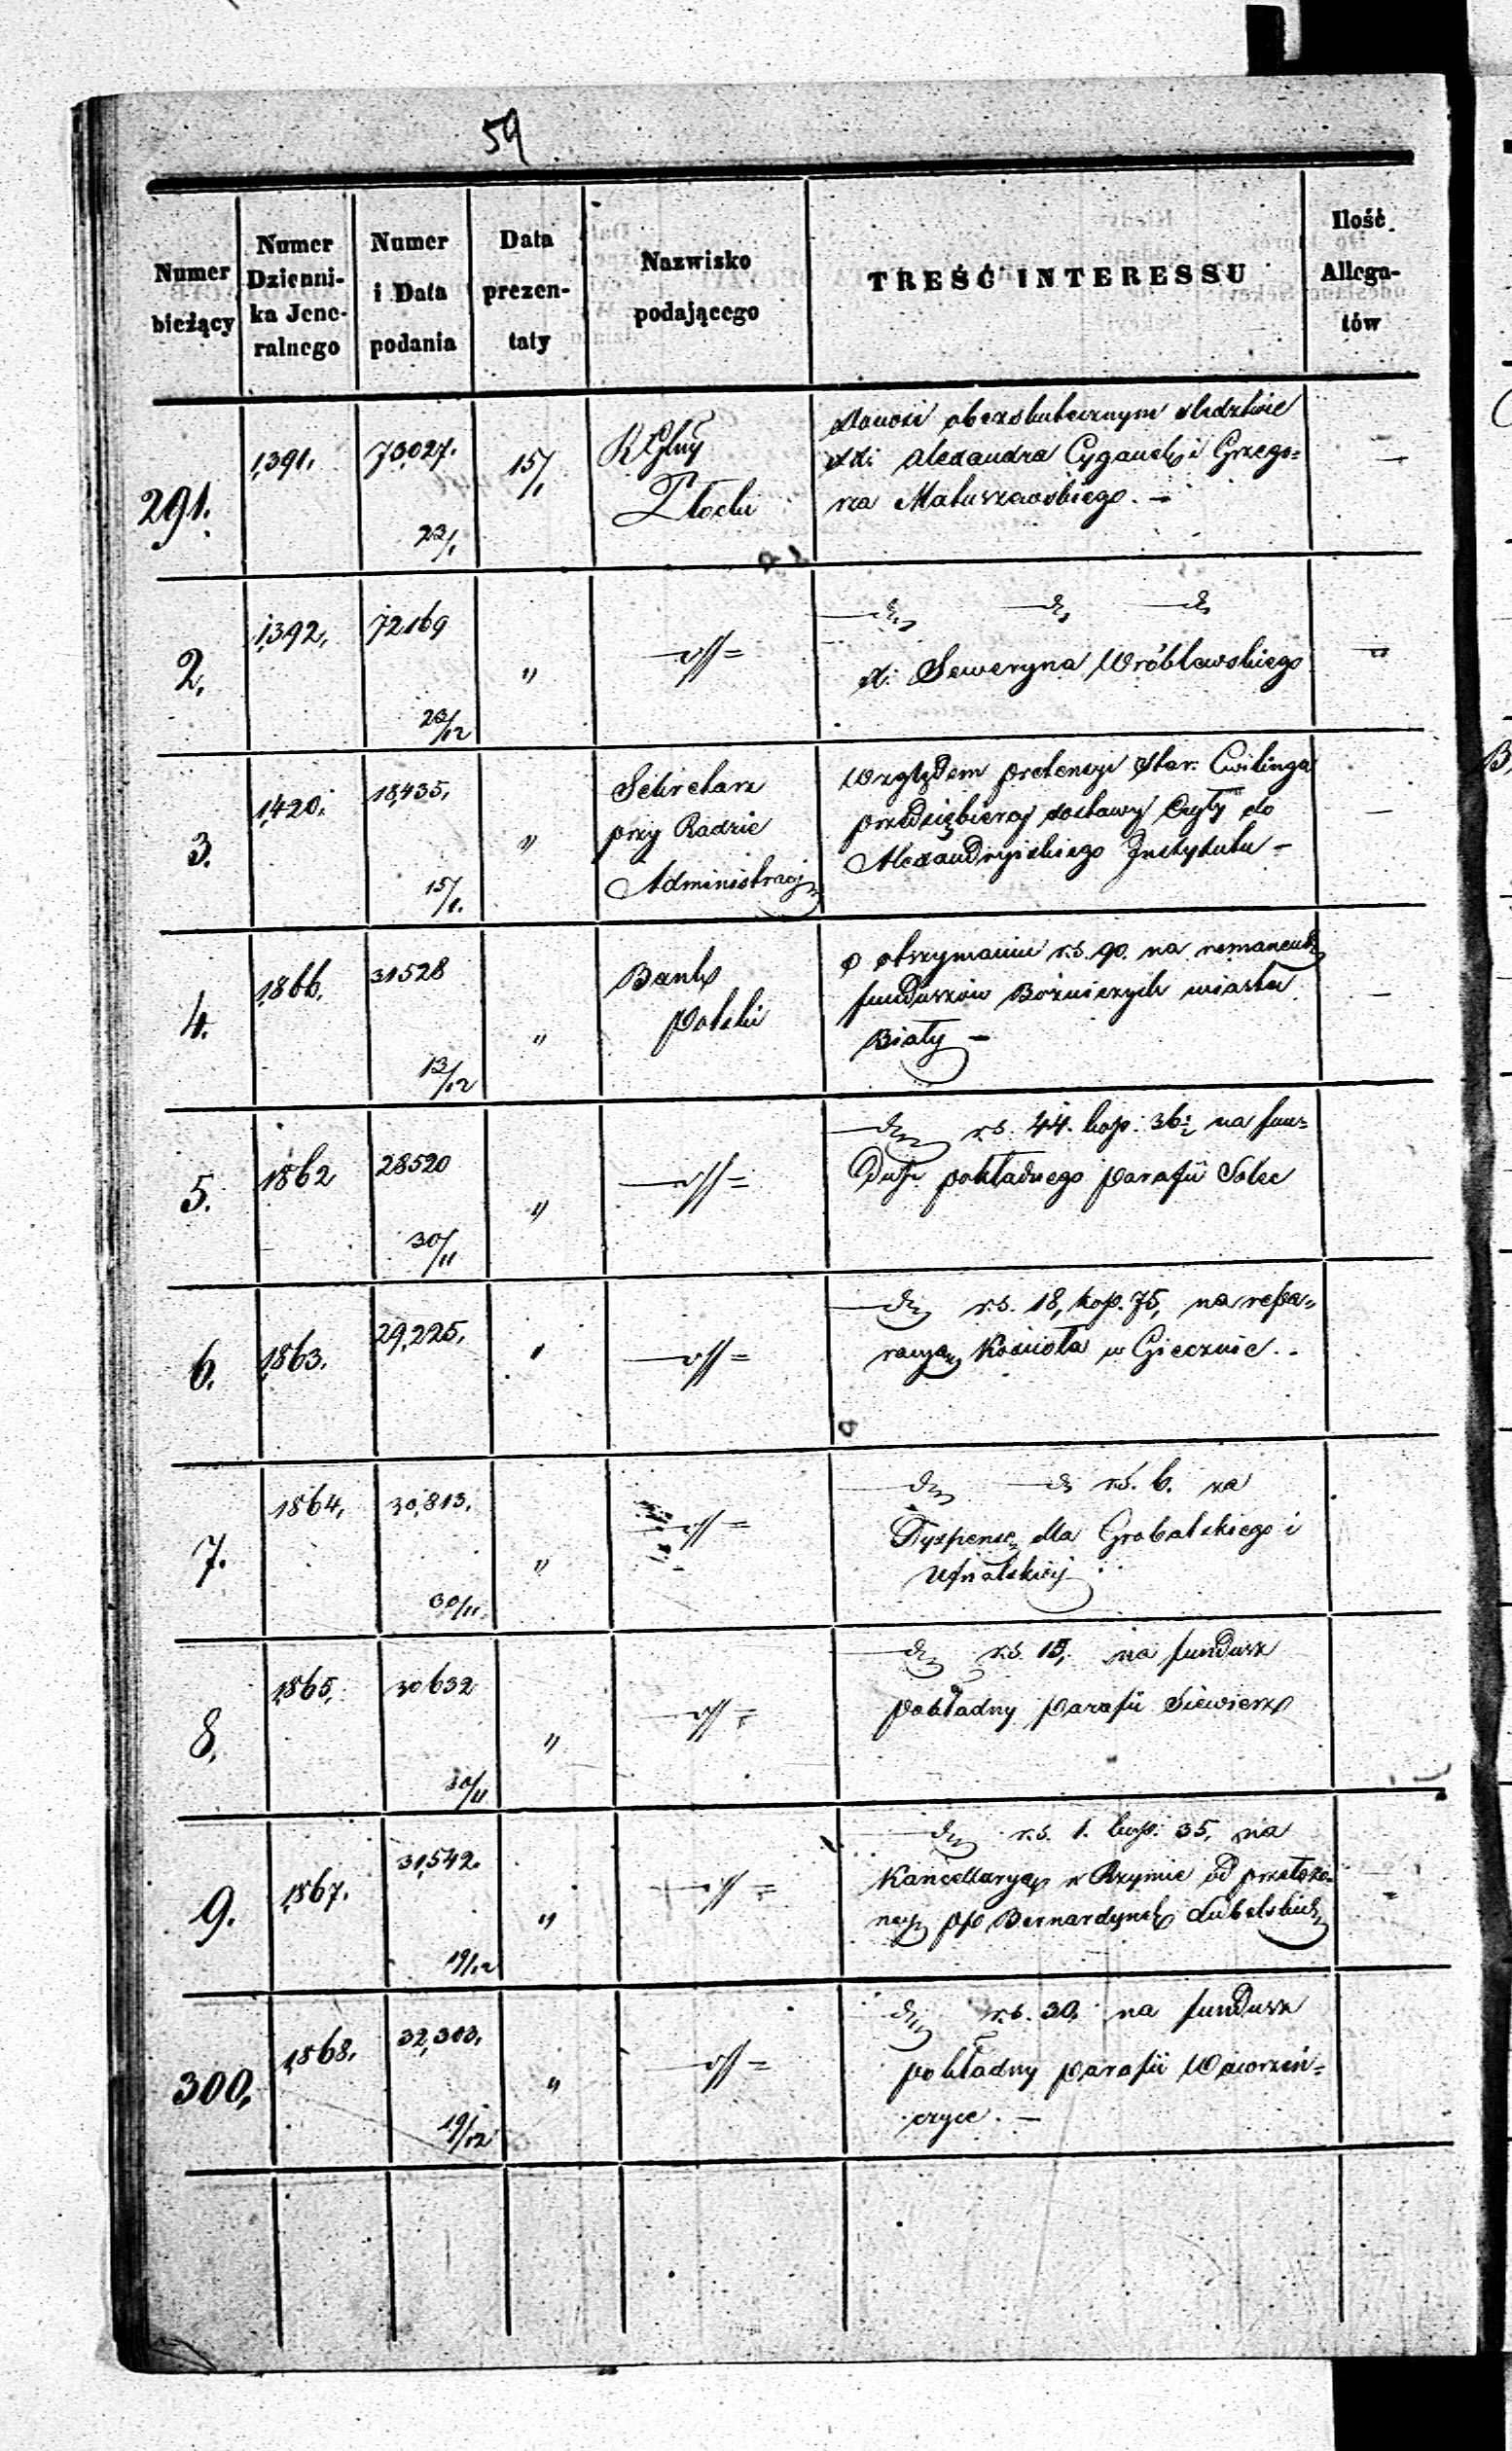 59
Numer bieżący
Numer Dzienni- ka Jene- ralnego
Numer i Data podania
Data prezen- taty
Nazwisko podającego
TREŚĆ INTERESSU
Ilość Allega- tów
291.
1,391.
73027.
23/1
15/1
R Gbny
Płocki
donosi o bezskutecznym śledztwie
Alexandra Cygański i Grzego=
rza Matuszewskiego. —
—
2.
1,392,
72169
23/12
"
—//=
—d— —d— —d—
d: Seweryna Wróblewskiego
3.
1,420.
18,435,
15/1.
"
Sekretarz
przy Radzie
Administracyj
Względem pretensyi Star: Cwilinga
przedsiębiercy dostawy do
Alexandryjskiego Instytutu —
—
4.
1,866.
31528
13/12
"
Bank
Polski
o otrzymaniu r.s. 90. na remanent
funduszów Bożniczych miasta
Biały —
—
5.
1862
28520
30/11
"
—//=
—d— r.s. 44. kop: 36½ na fun=
dusz pokładnego parafii Solec
6.
1,863.
29,225,
"
—//=
—d— r.s. 18, kop. 75, na repa=
racyą Kościoła w Giecznie. -
7.
1864,
30,813.
30/11
"
—//=
—d— —d— r.s. 6. na
Dyspensę dla Grobalskiego i
Uznalskiej
8.
1,865,
30632
30/11
"
—//=
—d— r.s. 15, na fundusz
pokładny parafii Siewierz
9.
1,867.
31,542.
19/12
"
—//=
—d— r.s. 1. kop: 35, na
Kancellaryą w Rzymie od przełożo=
nej pp Bernardynek Lubelskich
300,
1,868.
32,303,
19/12
"
—//=
—d— r.s. 30, na fundusz
pokładny parafii Wawrzeń=
czyce. —